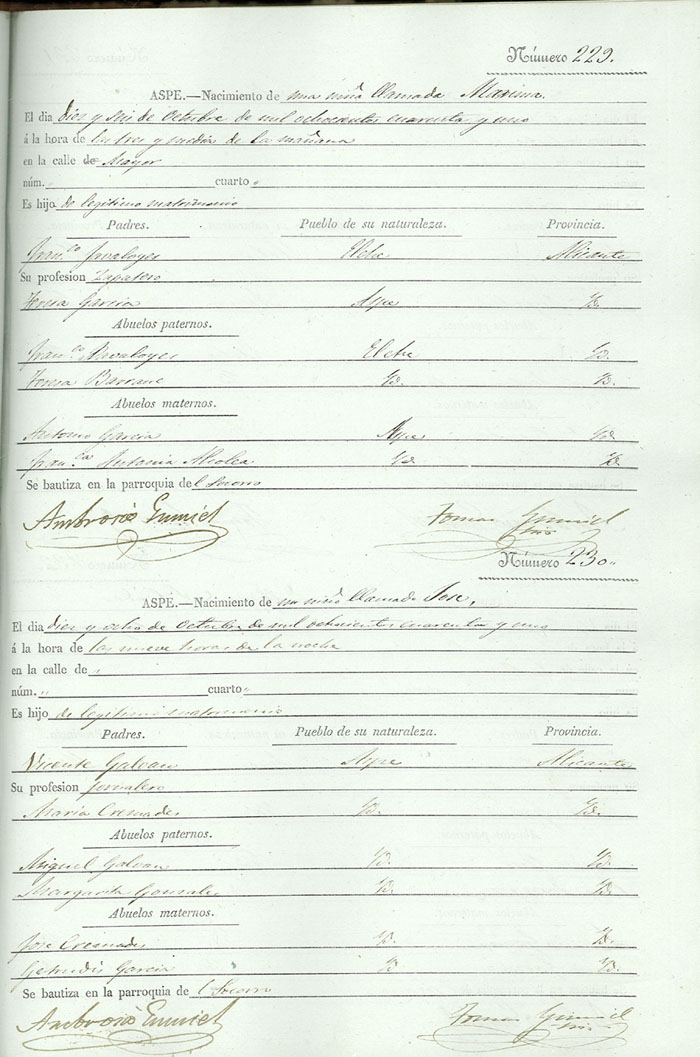 Número 229.
ASPE.—Nacimiento de una niña llamada Maxima.
El dia dies y seis de Octubre de mil ochocientos cuarenta y uno
á la hora de las tres y media de la mañana
en la calle de Mayor
núm. „ cuarto „
Es hijo de legitimo matrimonio
Padres. Pueblo de su naturaleza. Provincia.
Fran.co Elche Alicante
Su profesion Zapatero
Teresa Garcia Aspe Yd.
Abuelos paternos.
Fran.co Elche Yd.
Teresa Yd. Yd.
Abuelos maternos.
Antonio Garcia Aspe Yd.
Fran.ca Antonia Alcolea Yd. Yd.
Se bautiza en la parroquia del Socorro
Ambrosio Gumiel Tomas Gumiel
Srio
Número 230„
ASPE.—Nacimiento de un niño llamado Jose,
El dia dies y ocho de Octubre de mil ochocientos cuarenta y uno
á la hora de las nueve horas de la noche
en la calle de „
núm. „ cuarto „
Es hijo de legitimo matrimonio
Padres. Pueblo de su naturaleza. Provincia.
Vicente Galvan Aspe Alicante
Su profesion Jornalero
Maria Cremades Yd. Yd.
Abuelos paternos.
Miguel Galvan Yd. Yd.
Margarita Gonzalez Yd. Yd.
Abuelos maternos.
Jose Cremades Yd. Yd.
Getrudis Garcia Yd Yd.
Se bautiza en la parroquia de l Socorro
Ambrosio Gumiel Tomas Gumiel
Srio